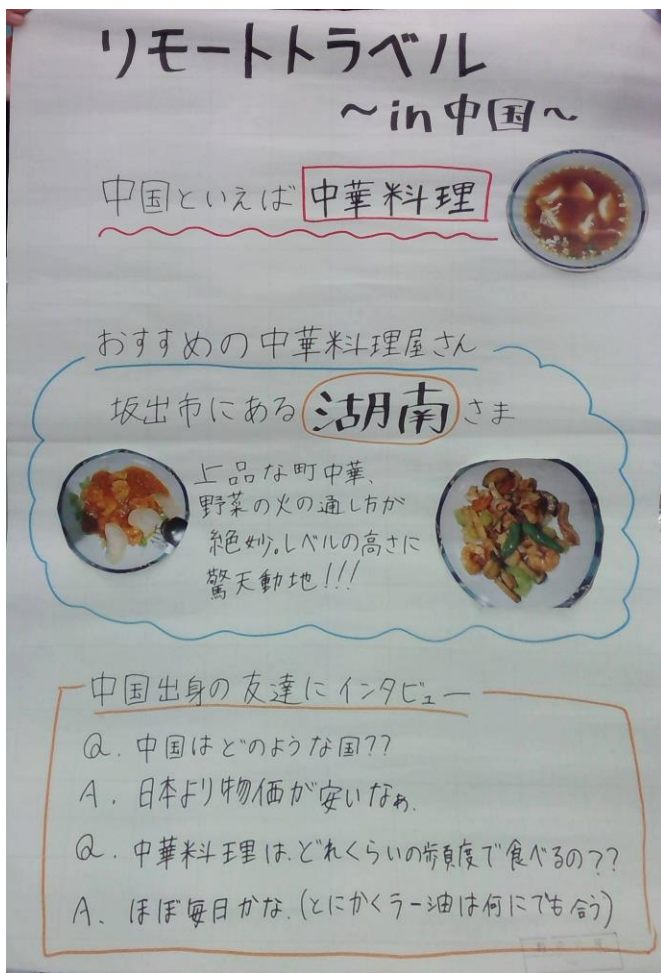 リモートトラベル
～in中国～
中国といえば 中華料理
おすすめの中華料理屋さん
坂出市にある 湖南 さま
上品な町中華、
野菜の火の通し方が
絶妙。レベルの高さに
驚天動地!!!
中国出身の友達にインタビュー
Q. 中国はどのような国??
A. 日本より物価が安いなぁ.
Q. 中華料理は、どれくらいの頻度で食べるの??
A. ほぼ毎日かな.(とにかくラー油は何にでも合う)